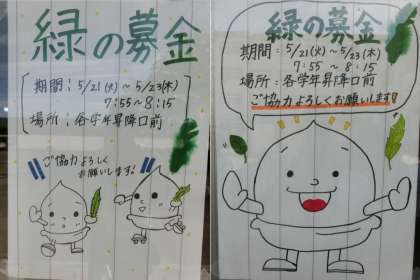 緑の募金
期間：5/21(火)～5/23(木)
7:55～8:15
場所：各学年昇降口前
ご協力よろしく
お願いします!
緑の募金
期間：5/21(火)～5/23(木)
7:55～8:15
場所：各学年昇降口前
ご協力よろしくお願いします!